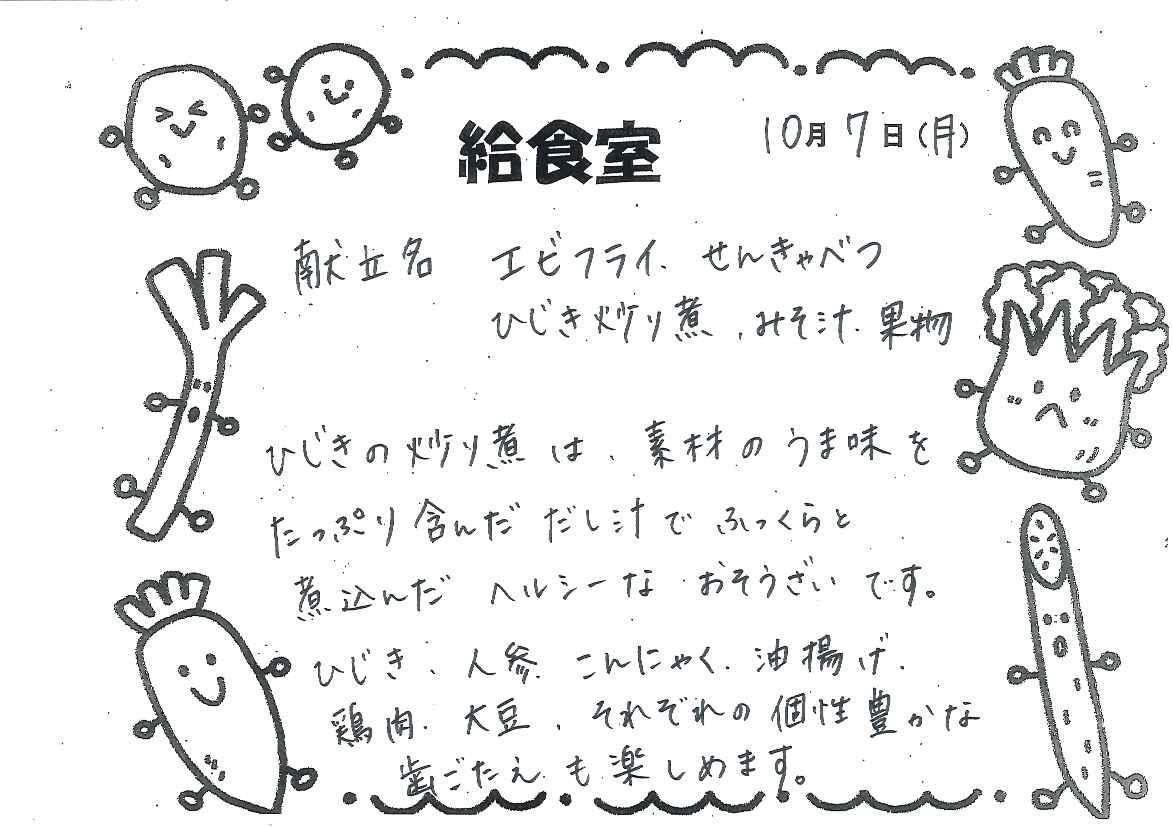 給食室
10月7日(月)
献立名 エビフライ、せんきゃべつ
ひじき炒り煮、みそ汁、果物
ひじきの炒り煮は、素材のうま味を
たっぷり含んだだし汁でふっくらと
煮込んだヘルシーなおそうざいです。
ひじき、人参、こんにゃく、油揚げ、
鶏肉、大豆、それぞれの個性豊かな
歯ごたえも楽しめます。